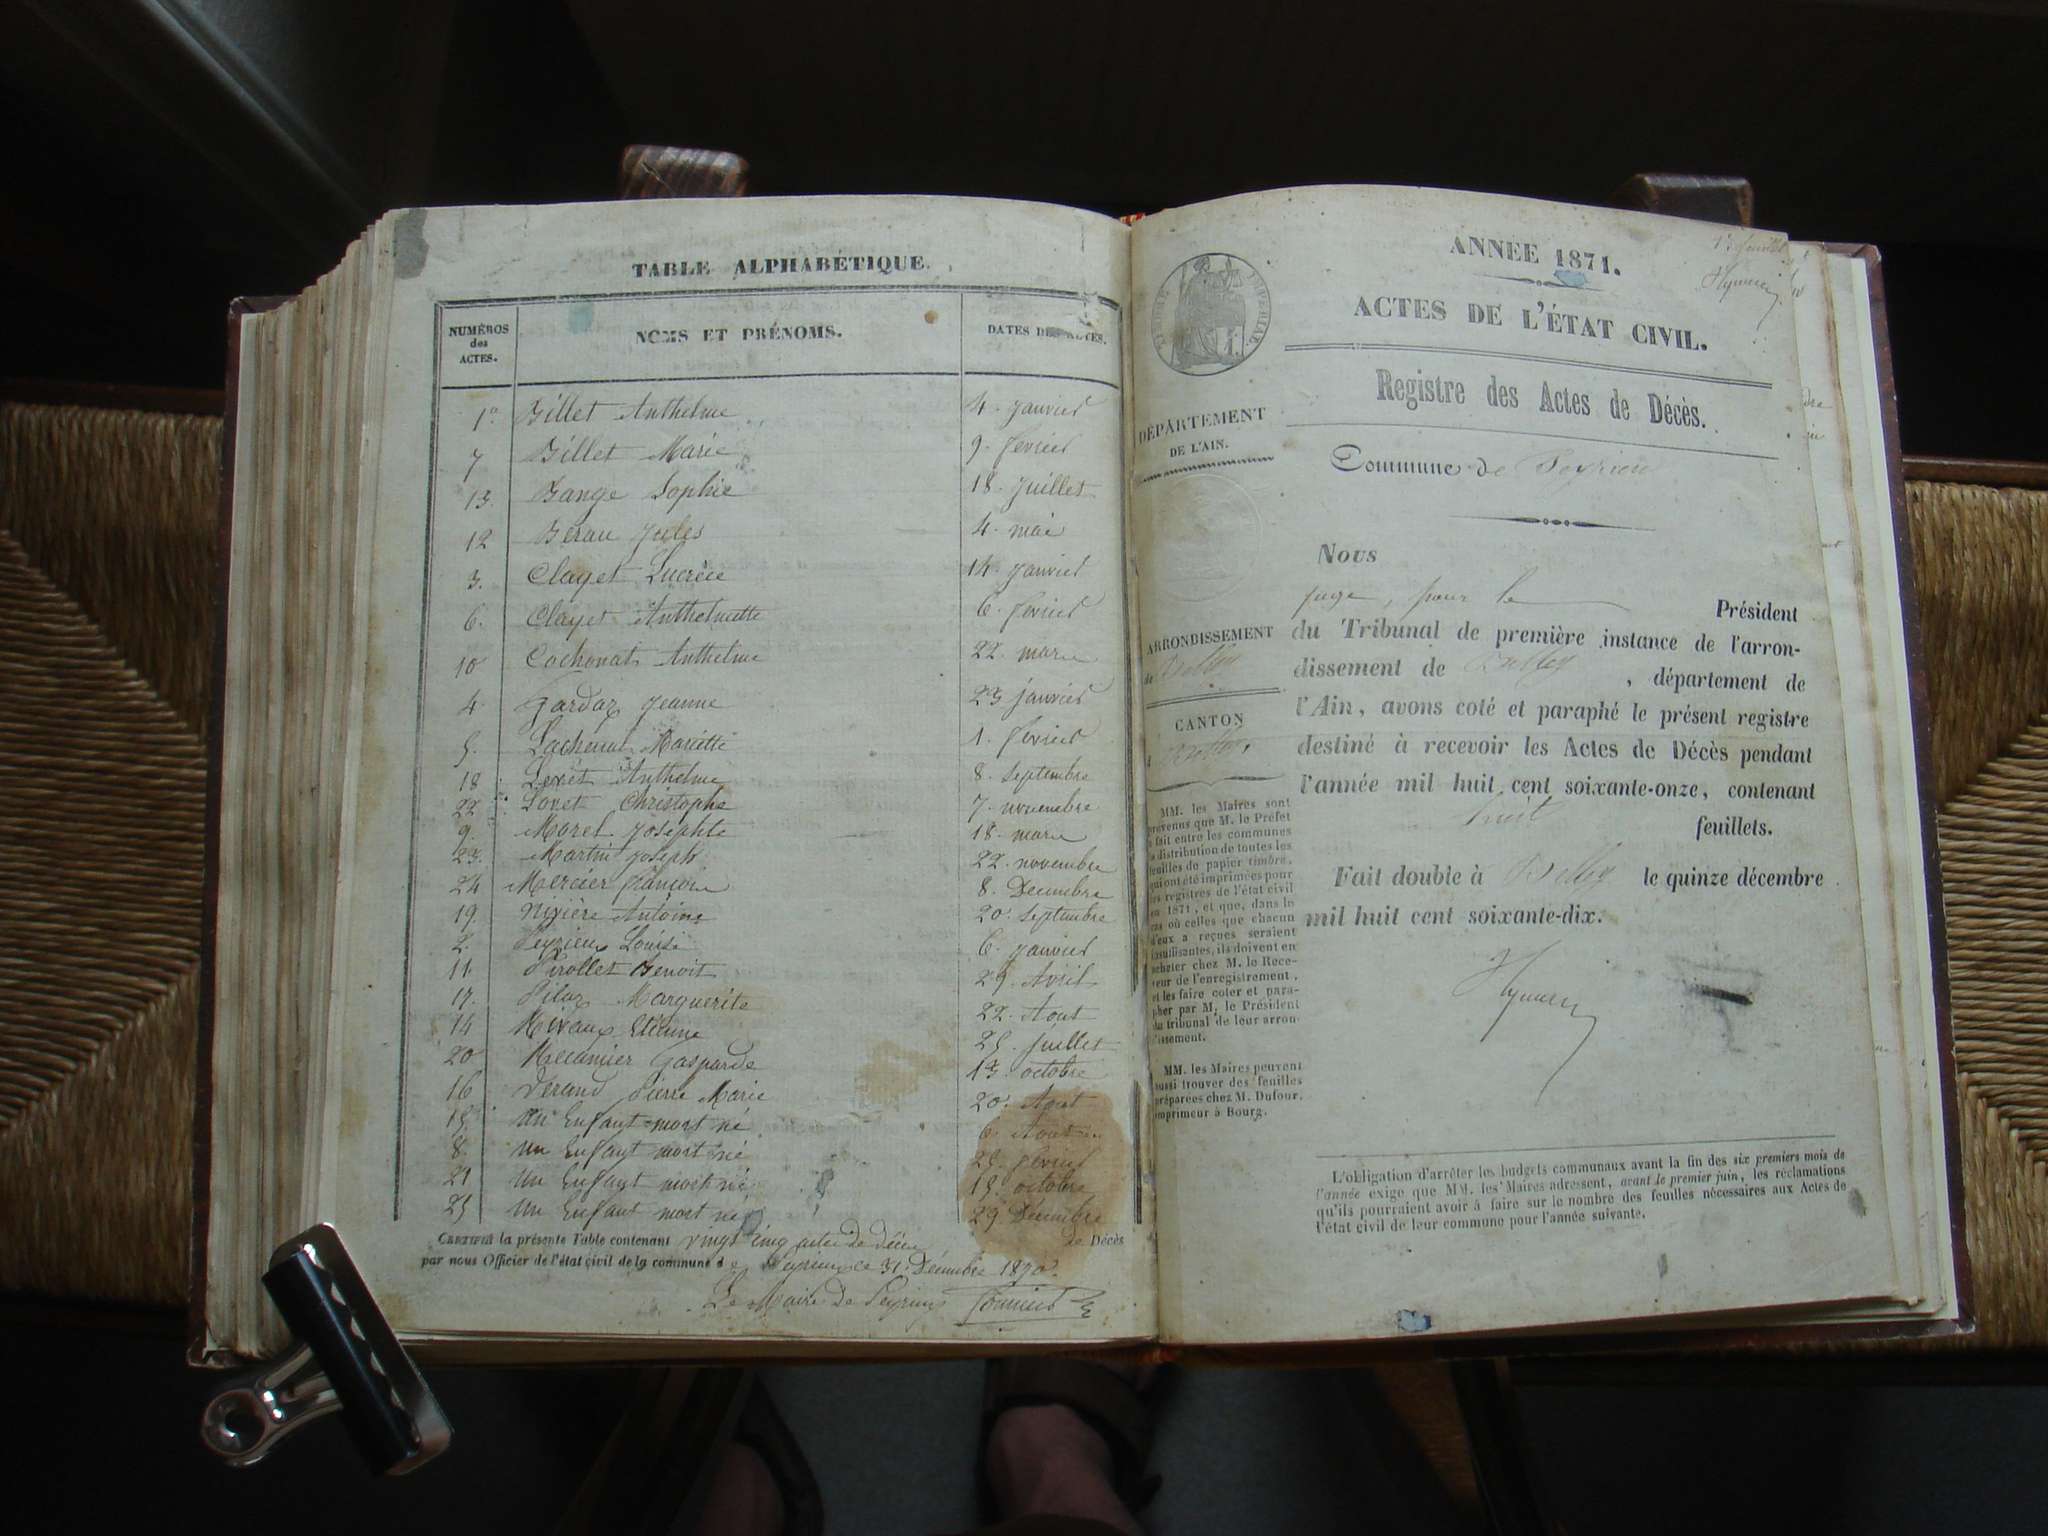 TABLE ALPHABÉTIQUE.
NUMÉROS des ACTES. NOMS ET PRÉNOMS. DATES DES ACTES.
1º Billet Anthelme 4. janvier
7 Billet Marie 9. fevrier
13. Bange Sophie 18. juillet
12 Berau Jules 4. mai
3. Clayet Lucrèce 14. janvier
6. Clayet Anthelmette 6. fevrier
10 Cochonat Anthelme 22. mars
4. Gardaz Jeanne 23 janvier
5. Mariette 1. fevrier
18 Anthelme 8. Septembre
22 Lovet Christophe 7. novembre
9. Morel Josephte 18. mars
23. Martin Joseph 22. novembre
24 Mercier françois 8. Decembre
19. Nivière Antoine 20. Septembre
2. Peyrieu Louise 6. janvier
11. Pirollet Benoit 29. Avril
17. Pilaz Marguerite 22. Aout
14 Rivaux Etienne 25. juillet
20 Recamier Gasparde 13. octobre
16 Pierre Marie 20. Aout
15. un Enfant mort né 6. Aout
8. un Enfant mort né 25. fevrier
21 un Enfant mort né 15. octobre
25 un Enfant mort né 29 Decembre
CERTIFIÉ la présente Table contenant vingt cinq actes de décès de Décès
par nous Officier de l'état civil de la commune de Peyrieu ce 31. Décembre 1870.
Le Maire de Peyrieu
ANNÉE 1871.
Hymerin
ACTES DE L'ÉTAT CIVIL.
TIMBRE IMPÉRIAL.
Registre des Actes de Décès.
DÉPARTEMENT
DE L'AIN.
Commune de Peyrieu
Nous
juge, pour le Président
du Tribunal de première instance de l'arron-
dissement de Belley, département de
l'Ain, avons coté et paraphé le présent registre
destiné à recevoir les Actes de Décès pendant
l'année mil huit cent soixante-onze, contenant
huit feuillets.
Fait double à Belley le quinze décembre
mil huit cent soixante-dix.
Hymerin
ARRONDISSEMENT
de Belley
CANTON
Belley
MM. les Maires sont
prévenus que M. le Préfet
a fait entre les communes
la distribution de toutes les
feuilles de papier timbré,
qui ont été imprimées pour
les registres de l'état civil
en 1871, et que, dans le
cas où celles que chacun
d'eux a reçues seraient
insuffisantes, ils doivent en
acheter chez M. le Rece-
veur de l'enregistrement,
et les faire coter et para-
pher par M. le Président
du tribunal de leur arron-
dissement.
MM. les Maires peuvent
aussi trouver des feuilles
préparées chez M. Dufour,
imprimeur à Bourg.
L'obligation d'arrêter les budgets communaux avant la fin des six premiers mois de
l'année exige que MM. les Maires adressent, avant le premier juin, les réclamations
qu'ils pourraient avoir à faire sur le nombre des feuilles nécessaires aux Actes de
l'état civil de leur commune pour l'année suivante.